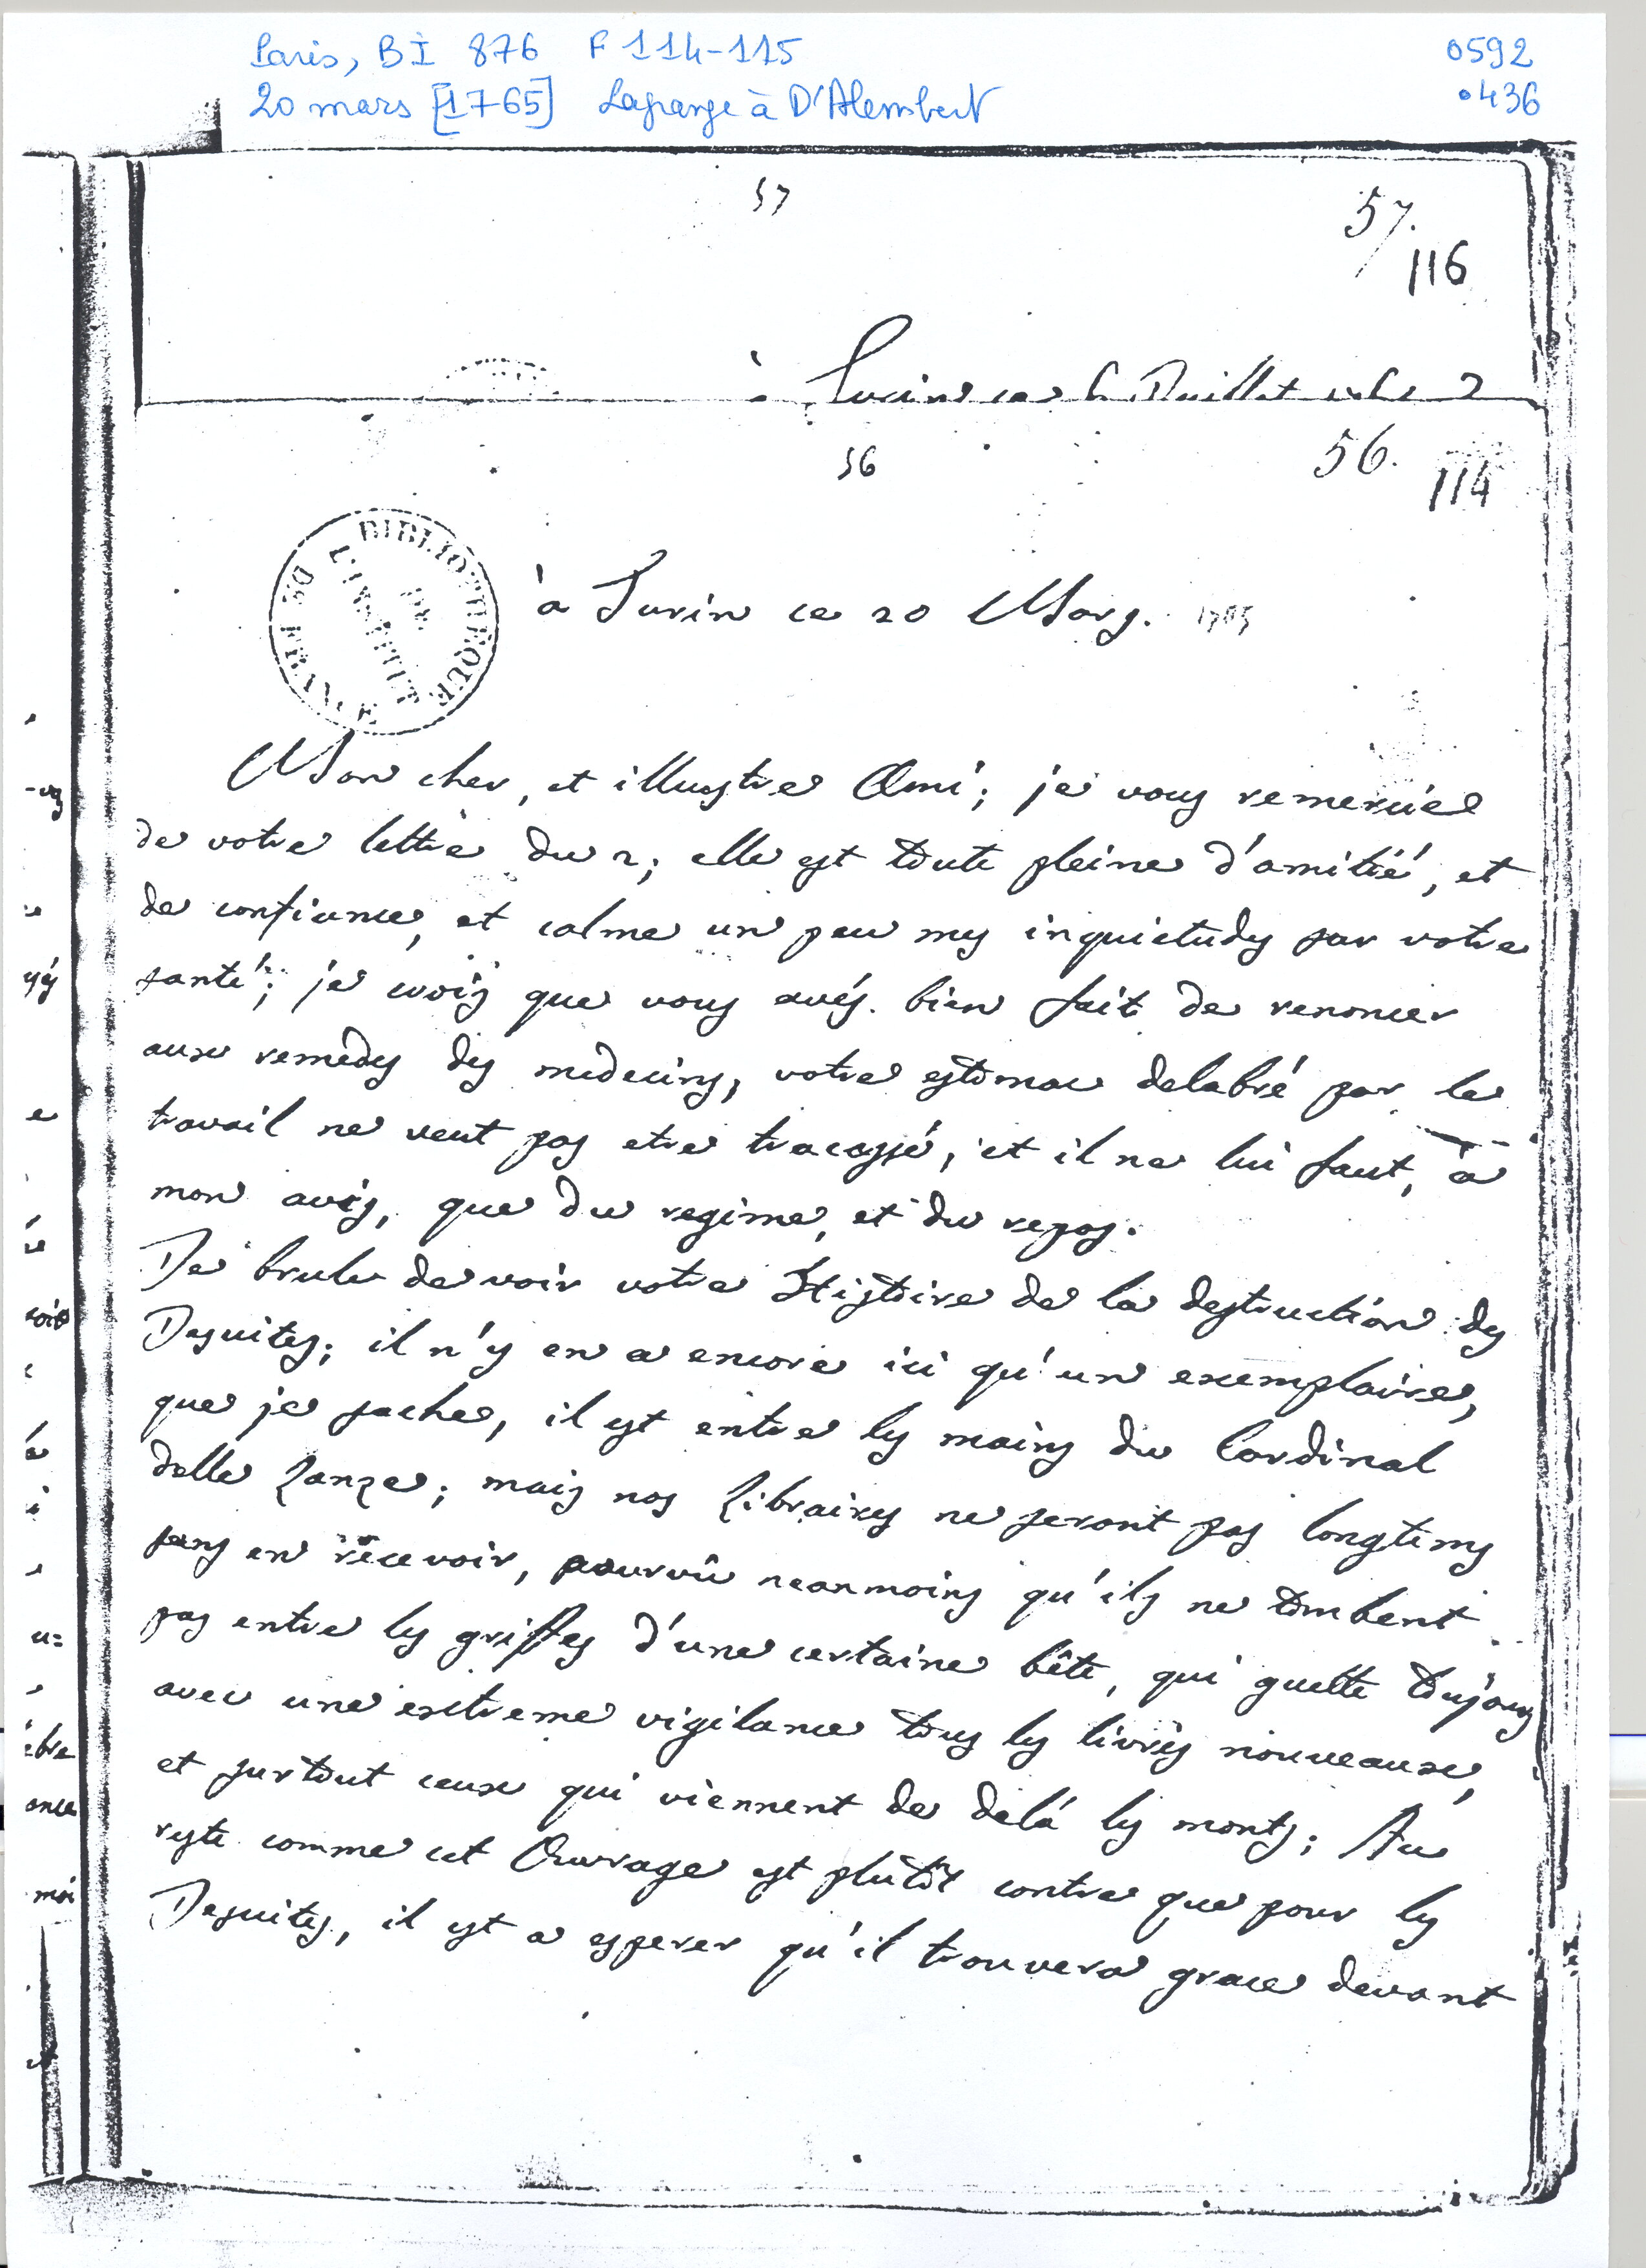 Paris, BI 876 F 114-115
0592
20 mars [1765] Lagrange à D'Alembert
0436
57
57.
116
à Turin ce 6 Juillet
56
56.
114
BIBLIOTHEQUE DE L'INSTITUT DE FRANCE
à Turin ce 20 Mars. 1765
Mon cher, et illustre Ami; je vous remercie
de votre lettre du 2; elle est toute pleine d'amitié, et
de confiance, et calme un peu mes inquietudes sur votre
santé; je crois que vous avés bien fait de renoncer
aux remedes des medecins, votre estomac delabré par le
travail ne veut pas etre tracassé, et il ne lui faut, à
mon avis, que du regime, et du repos.
Je brule de voir votre Histoire de la destruction des
Jesuites; il n'y en a encore ici qu'un exemplaire,
que je sache, il est entre les mains du Cardinal
delle Lanze; mais nos Libraires ne seront pas longtems
sans en recevoir, pourvû neanmoins qu'ils ne tombent
pas entre les griffes d'une certaine bête, qui guette toujours
avec une extreme vigilance tous les livres nouveaux,
et surtout ceux qui viennent de delà les monts; Au
reste comme cet Ouvrage est plutôt contre que pour les
Jesuites, il est a esperer qu'il trouvera grace devant